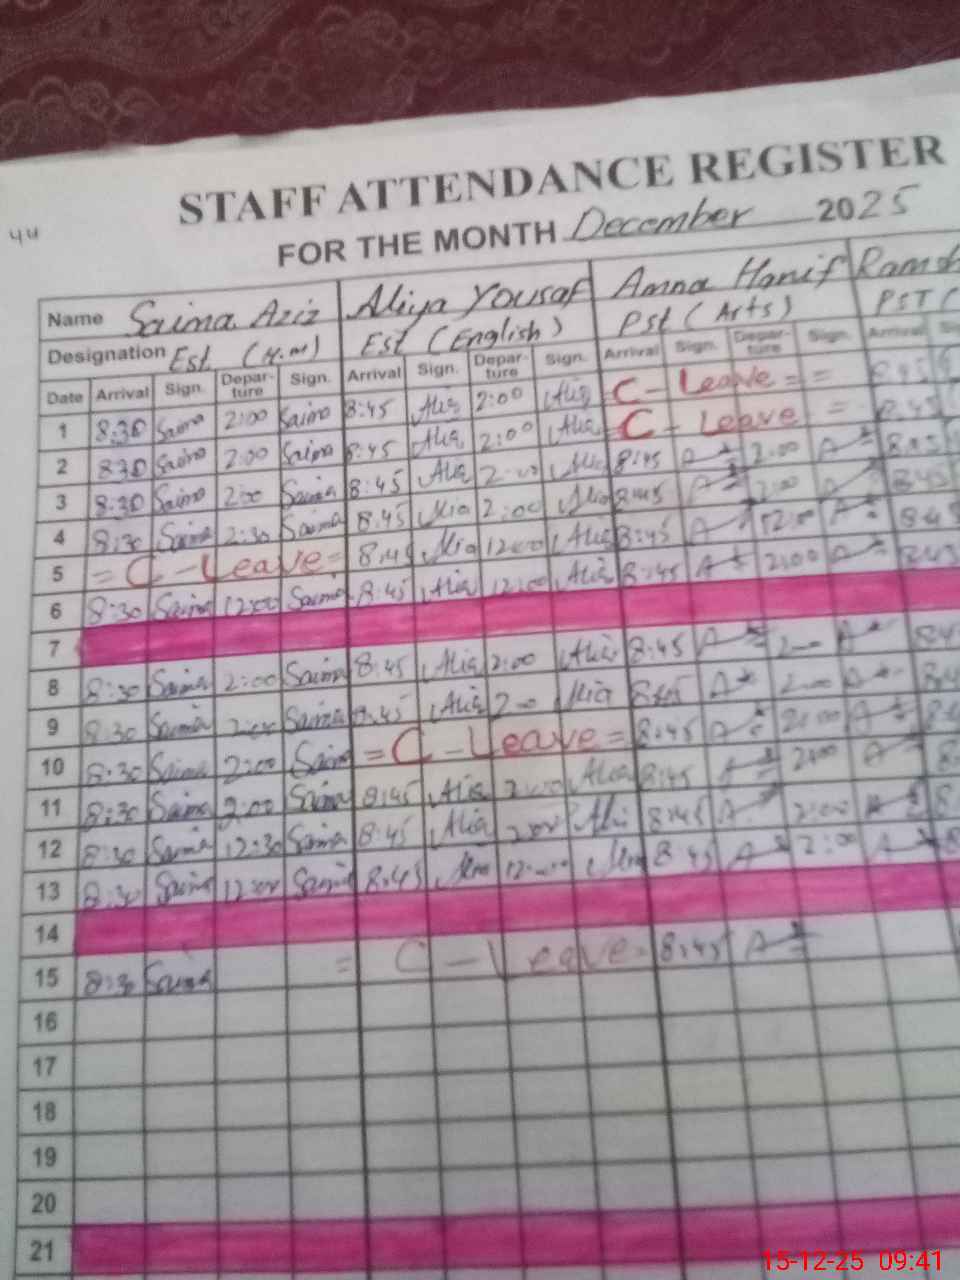 44
STAFF ATTENDANCE REGISTER
FOR THE MONTH December 2025
Name Saima Aziz Aliya Yousaf Amna Hanif
Designation Est. (H.M) Est (English) Pst (Arts) PST (
Date Arrival Sign. Depar-ture Sign. Arrival Sign. Depar-ture Sign. Arrival Sign. Depar-ture Sign. Arrival
1 8:30 Saima 2:00 Saima 8:45 Alia 2:00 Alia C - Leave = = 8:45
2 8:30 Saima 2:00 Saima 8:45 Alia 2:00 Alia C - Leave = 8:45
3 8:30 Saima 2:00 Saima 8:45 Alia 2:00 Alia 8:45 A 2:00 A 8:45
4 8:30 Saima 2:30 Saima 8:45 Alia 2:00 Alia 8:45 A 2:00 A 8:45
5 = C - Leave = 8:45 Alia 12:00 Alia 8:45 A 12:00 A 8:45
6 8:30 Saima 12:00 Saima 8:45 Alia 12:00 Alia 8:45 A 2:00 A 8:45
7
8 8:30 Saima 2:00 Saima 8:45 Alia 2:00 Alia 8:45 A A
9 8:30 Saima 2:00 Saima 8:45 Alia Alia 8:45 A A
10 8:30 Saima 2:00 Saima = C - Leave = 8:45 A 2:00 A
11 8:30 Saima 2:00 Saima 8:45 Alia 2:00 Alia 8:45 A 2:00 A
12 8:30 Saima 12:30 Saima 8:45 Alia 2:00 Ali 8:45 A 2:00 A
13 8:30 Saima 12:00 Saima 8:45 8:45 A 2:00 A
14
15 8:30 Saima = C - Leave = 8:45 A
16
17
18
19
20
21
15-12-25 09:41